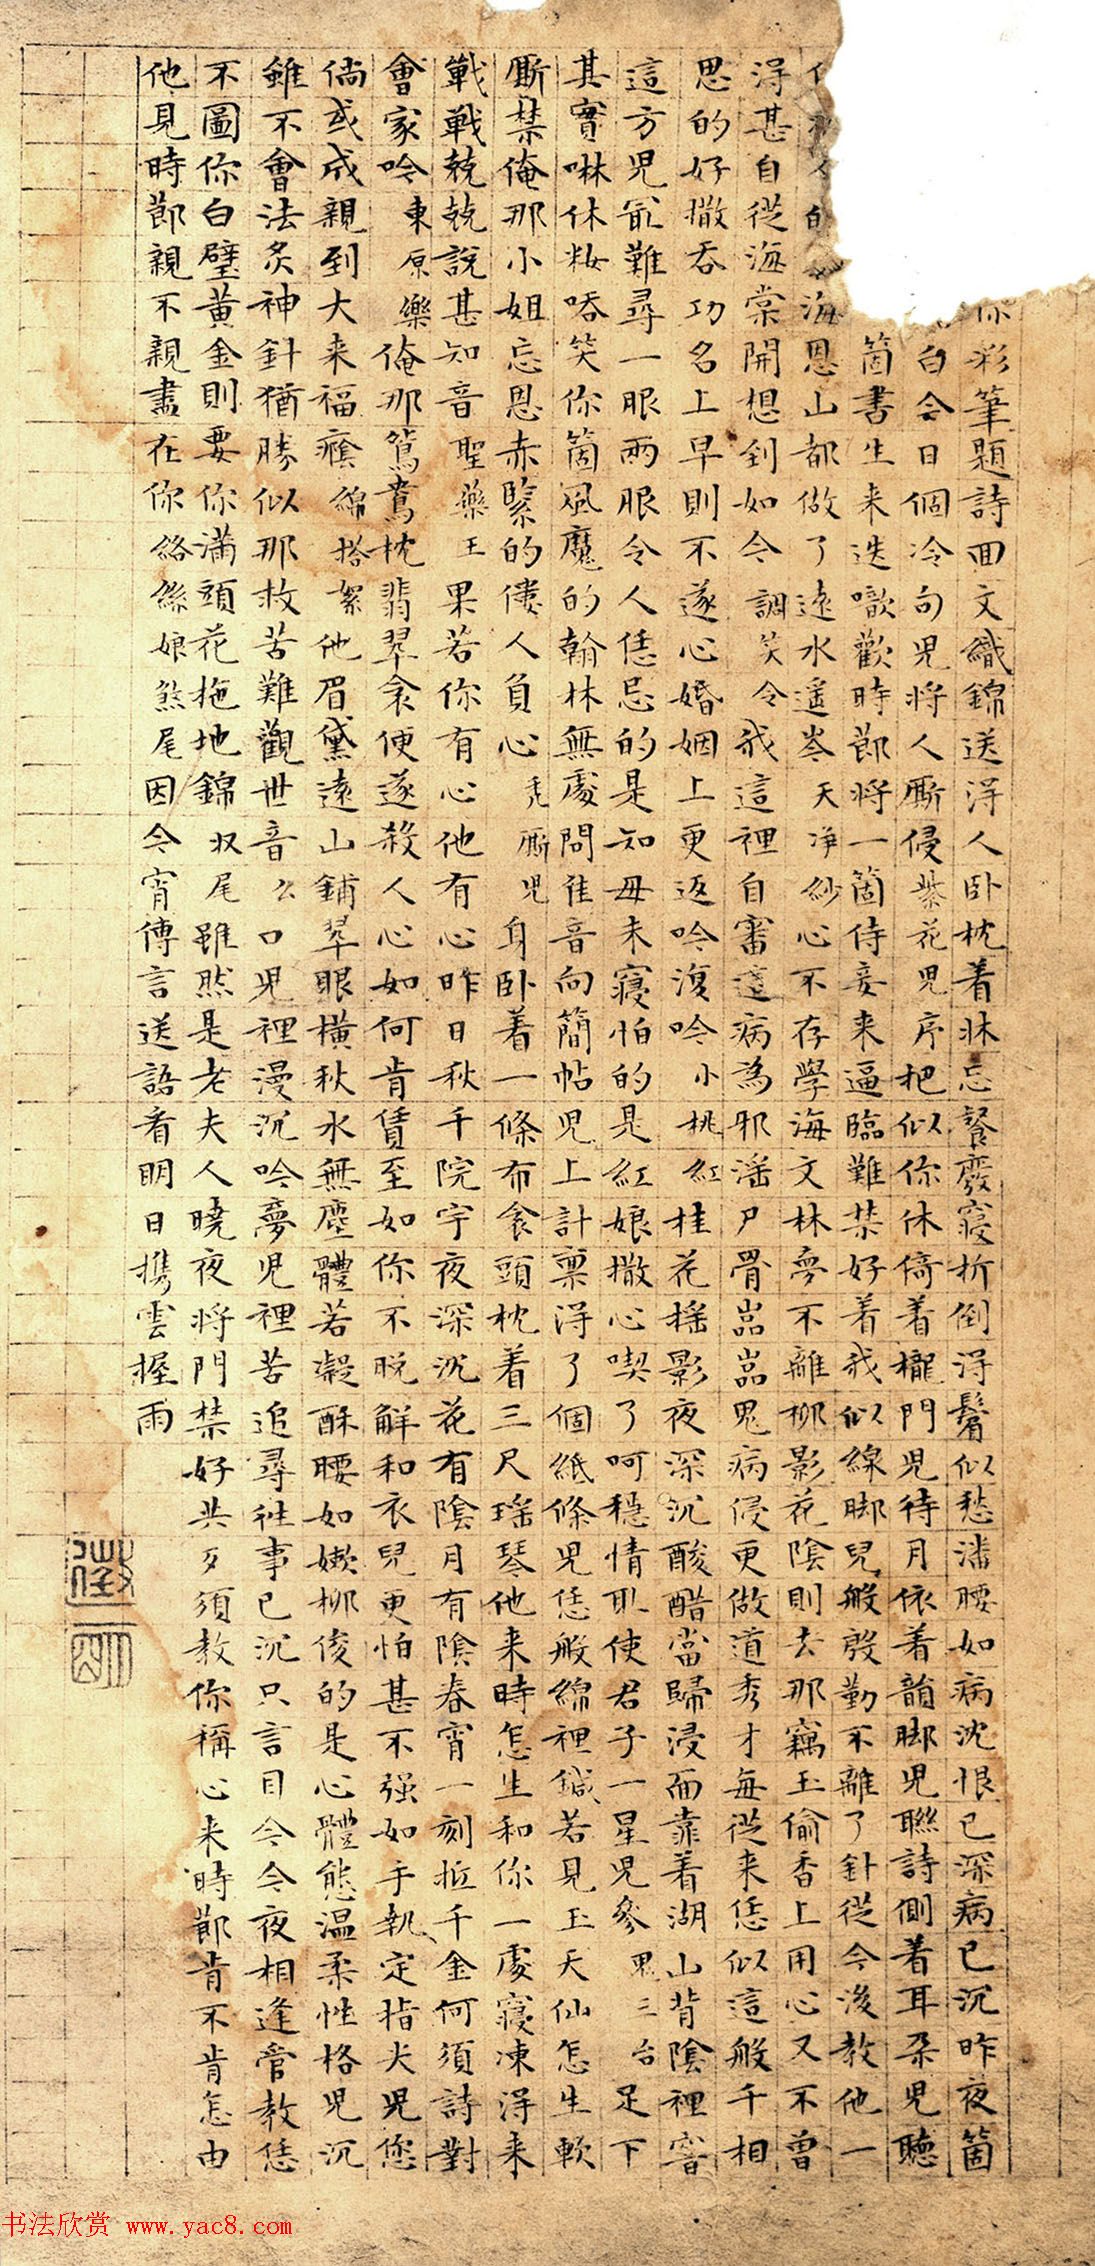 你彩筆題詩回文織錦送得人卧枕着牀忘餐廢寢折倒得鬢似愁潘腰如病沈恨已深病已沉昨夜箇
白今日個冷句兒將人廝侵紫花兒序把似你休倚着櫳門兒待月依着韻脚兒聯詩側着耳朶兒聽
箇書生来迭噷歡時節將一箇侍妾来逼臨難禁好着我似線脚兒般殷勤不離了針從今後教他一
海恩山都做了遠水遥岑天净紗心不存學海文林夢不離柳影花陰則去那竊玉偷香上用心又不曾
得甚自從海棠開想到如今調笑令我這裡自審這病為邪淫尸骨嵓嵓鬼病侵更做道秀才每從来恁似這般千相
思的好撒吞功名上早則不遂心婚姻上更返吟復吟小桃紅桂花摇影夜深沉酸醋當歸浸面靠着湖山背陰裡窨
這方兒㝡難尋一服兩服令人恁忌的是知母未寝怕的是紅娘撒心喫了呵穩情取使君子一星兒參鬼三台足下
其實啉休粧唔笑你箇風魔的翰林無處問佳音向簡帖兒上計禀得了個紙條兒恁般綿裡鍼若見玉天仙怎生軟
廝禁俺那小姐忘恩赤緊的僂人負心秃廝兒身卧着一條布衾頭枕着三尺瑶琴他来時怎生和你一處寝凍得来
戰戰兢兢說甚知音聖藥王果若你有心他有心昨日秋千院宇夜深沉花有陰月有陰春宵一刻抵千金何須詩對
會家吟東原樂俺那鴛鴦枕翡翠衾便遂殺人心如何肯賃至如你不脱解和衣兒更怕甚不强如手執定指尖兒您
倘或成親到大来福癊綿搭絮他眉黛遠山鋪翠眼横秋水無塵體若凝酥腰如嫩柳俊的是心體態温柔性格兒沉
雖不會法灸神針猶勝似那救苦難觀世音幺口兒裡漫沉吟夢兒裡苦追尋往事已沉只言目今今夜相逢管教恁
不圖你白璧黄金則要你滿頭花拖地錦收尾雖然是老夫人曉夜將門禁好共歹須教你稱心来時節肯不肯怎由
他見時節親不親盡在你絡絲娘煞尾因今宵傳言送語看明日擕雲握雨
书法欣赏 www.yac8.com